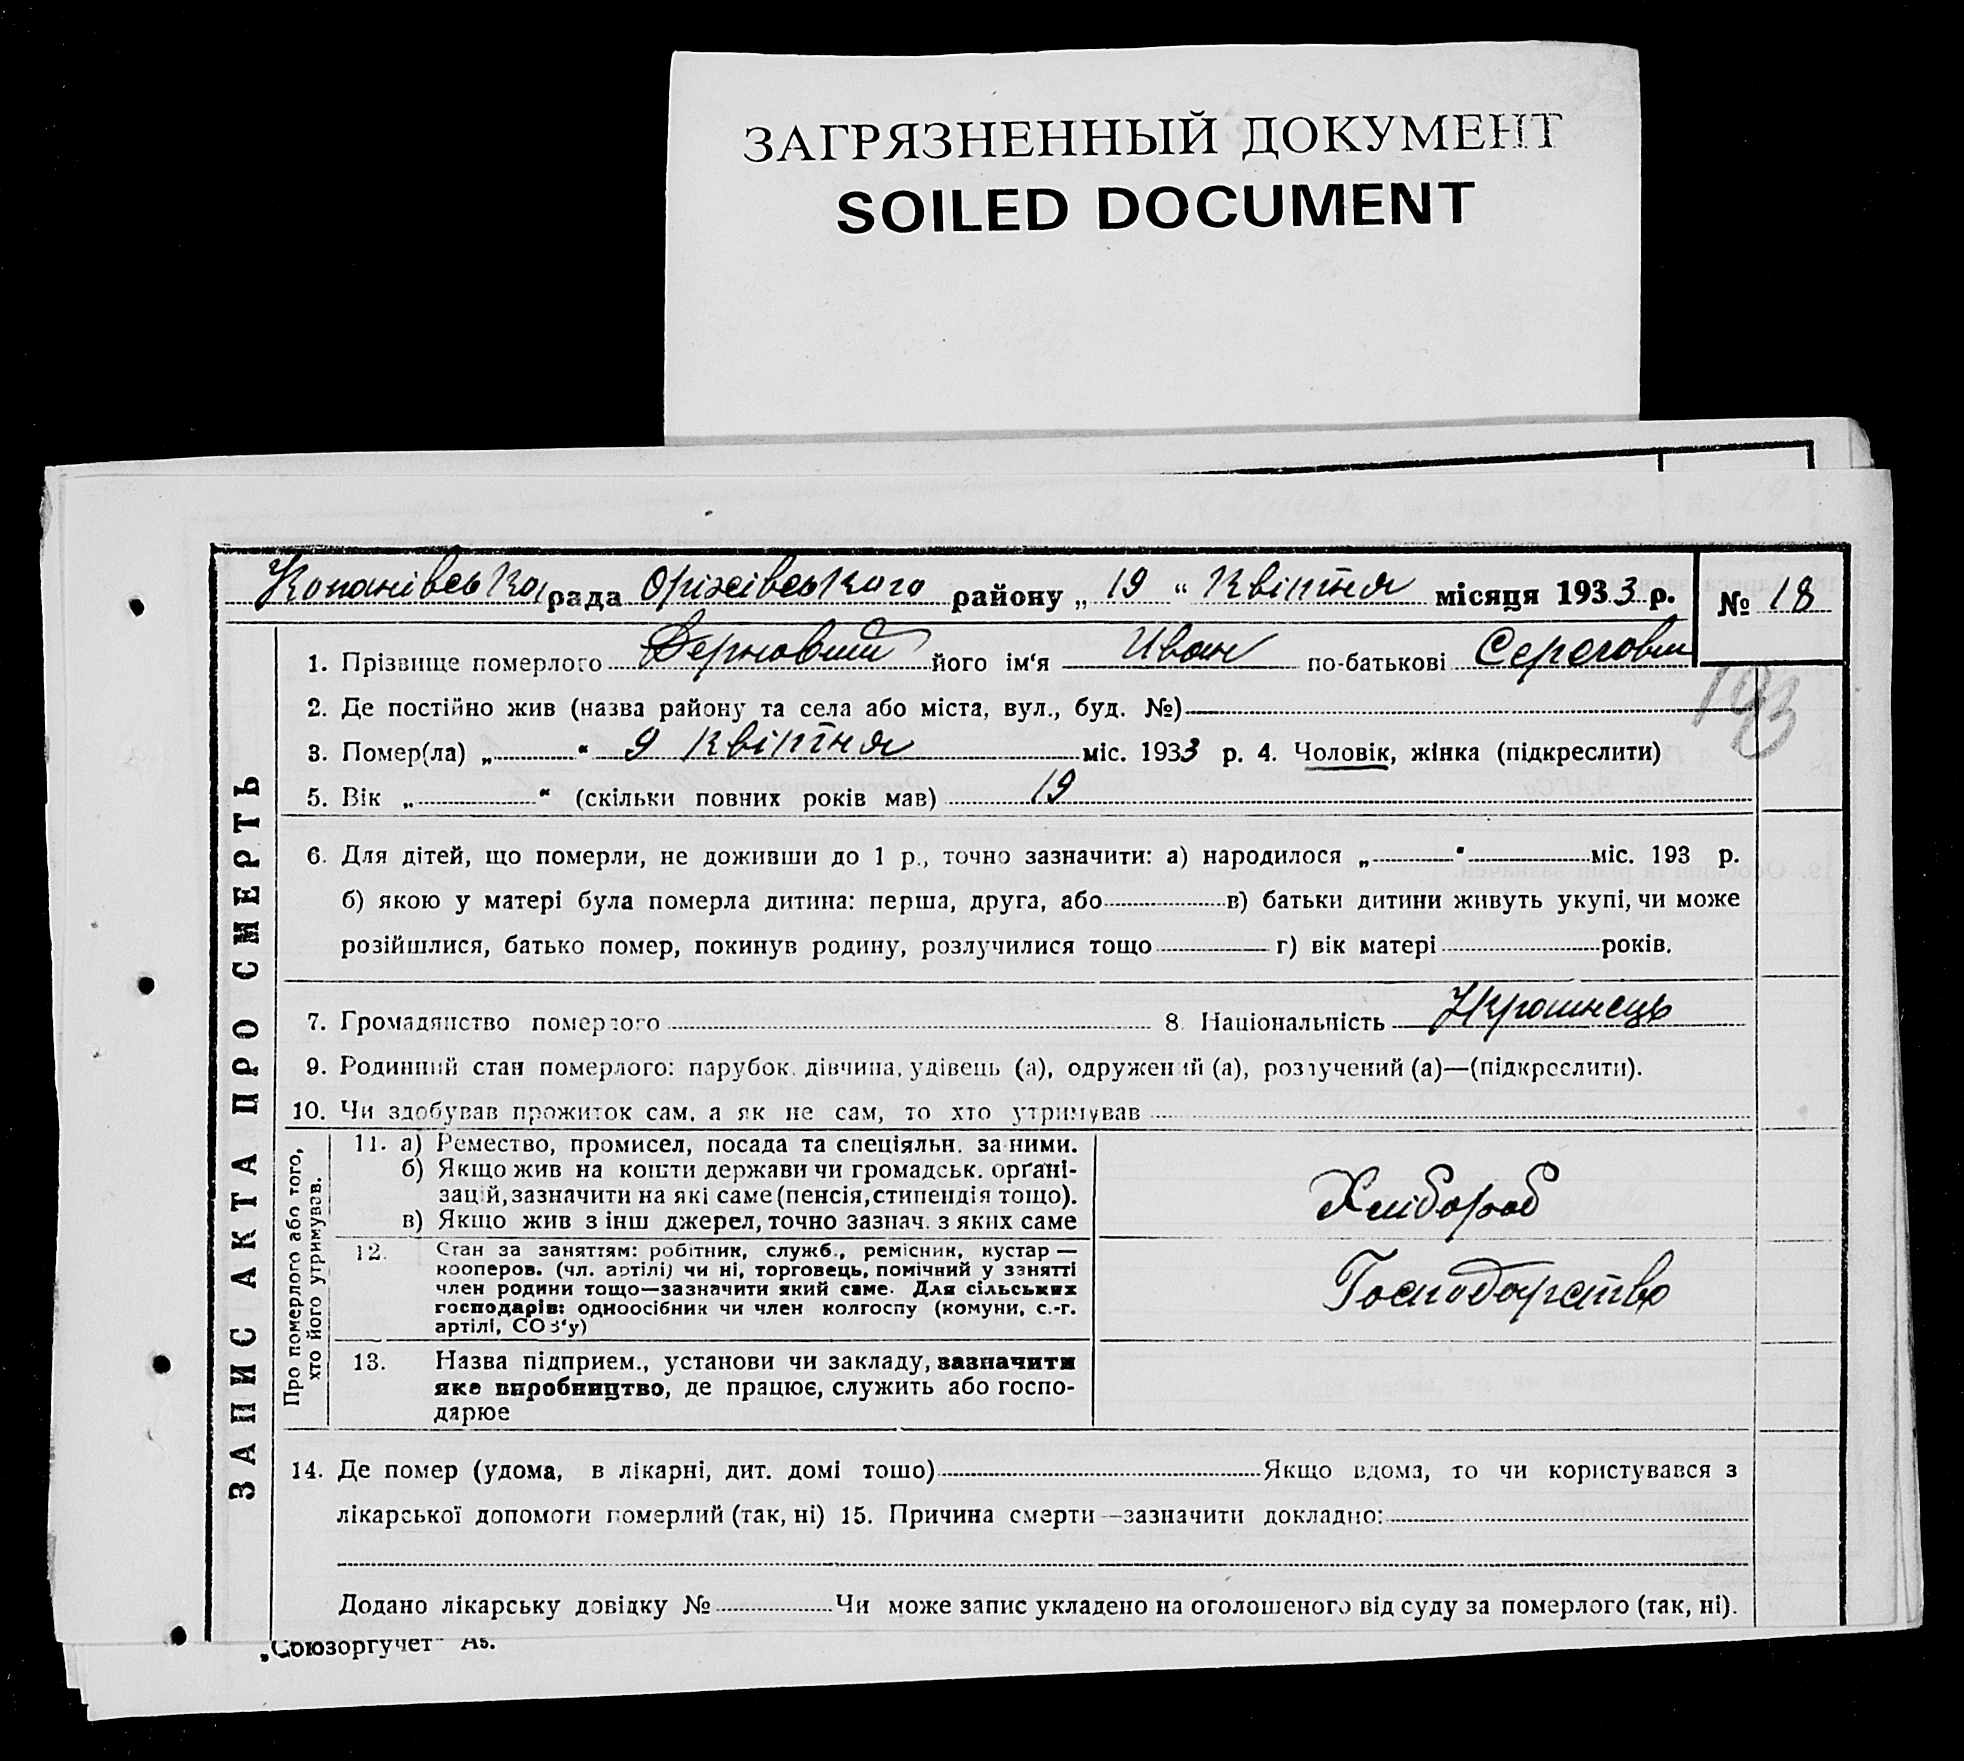 ЗАГРЯЗНЕННЫЙ ДОКУМЕНТ
SOILED DOCUMENT
Копанівська рада Оріхівського району „ 19 “ Квітня місяця 1933 р. № 18
1. Прізвище померлого його ім‘я Иван по-батькові
193
2. Де постійно жив (назва району та села або міста, вул., буд. №)
3. Помер(ла) „ “ 9 Квітня міс. 1933 р. 4. Чоловік, жінка (підкреслити)
5. Вік „ “ (скільки повних років мав) 19
6. Для дітей, що померли, не доживши до 1 р., точно зазначити: а) народилося „ “ міс. 193 р.
б) якою у матері була померла дитина: перша, друга, або в) батьки дитини живуть укупі, чи може
розійшлися, батько помер, покинув родину, розлучилися тощо г) вік матері років.
7. Громадянство померлого 8. Національність Українець
9. Родинний стан померлого: парубок, дівчина, удівець (а), одружений (а), розлучений (а)—(підкреслити).
10. Чи здобував прожиток сам, а як не сам, то хто утримував
ЗАПИС АКТА ПРО СМЕРТЬ
Про померлого або того,
хто його утримував.
11. а) Ремество, промисел, посада та спеціяльн. за ними.
б) Якщо жив на кошти держави чи громадськ. орґані-
зацій, зазначити на які саме (пенсія, стипендія тощо).
в) Якщо жив з інш джерел, точно зазнач. з яких саме
Хлібороб
12. Стан за заняттям: робітник, служб., ремісник, кустар —
кооперов. (чл. артілі) чи ні, торговець, помічний у занятті
член родини тощо—зазначити який саме. Для сільських
господарів: одноосібник чи член колгоспу (комуни, с.-г.
артілі, СОЗ‘у)
Господарство
13. Назва підприєм., установи чи закладу, зазначити
яке виробництво, де працює, служить або госпо-
дарює
14. Де помер (удома, в лікарні, дит. домі тощо) Якщо вдома, то чи користувався з
лікарської допомоги померлий (так, ні) 15. Причина смерти—зазначити докладно:
Додано лікарську довідку № Чи може запис укладено на оголошеного від суду за померлого (так, ні).
„Союзоргучет“ А5.